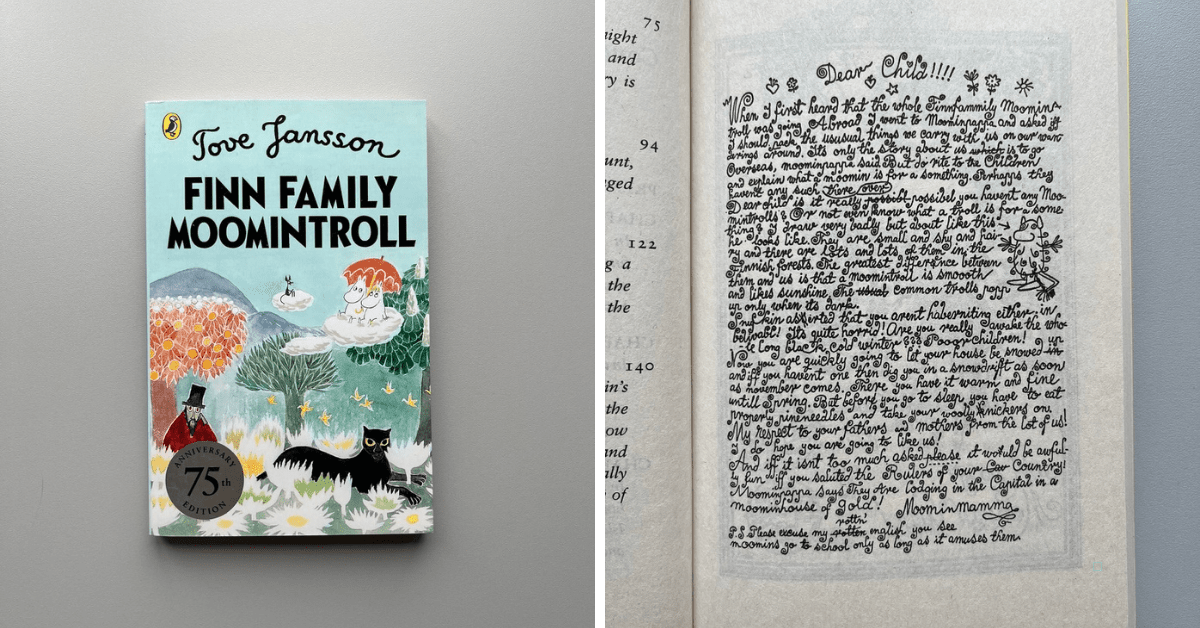 Tove Jansson
FINN FAMILY
MOOMINTROLL
ANNIVERSARY
75th
EDITION
75
night
and
y is
94
unt,
ged
122
g a
the
the
140
in's
the
ow
and
ally
of
Dear Child!!!!
"When I first heard that the whole Finnfammily Moomin-
troll was going Abroad I went to Moominpappa and asked iff
I should pack the ususual things we carry with us on our wan-
derings around. Its only the story about us which is to go
Overseas, moominpappa said. But do rite to the Children
and explain what a moomin is for a something. Perhapps they
havent any such there over
Dear child is it really possibl possibel you havent any Moo-
mintrolls? Or not even know what a troll is for a some
thing? I draw very badly but about like this →
he looks like. They are small and shy and hai-
ry and there are lots and lots of them in the
Finnish forests. The greatest difference between
them and us is that a moomintroll is smoooth
and likes sunshine. The usual common trolls popp
up only when its dark.
Snufkin asserted that you arent haberniting either, in
belivabl! Its quite horrid! Are you really awake the who-
le long black cold winter??? Poogr children!
Now you are quickly going to let your house be snowed in up
and iff you havent one then dig you in a snowdrift as soon
as november comes. There you have it warm and fine
untill Spring. But before you go to sleep you have to eat
properly pineneedles and take your woolly knickers on.
My respect to your fathers and mothers from the lot of us!
I do hope you are going to like us!
And iff it isnt too much asked please it would be awful-
ly fun iff you saluted the Rulers of your Country!
Moominpappa says They Are lodging in the Capital in a
moominhouse of gold! Moominmamma
rottn'
P.S Please excuse my rotten english you see
moomins go to school only as long as it amuses them.